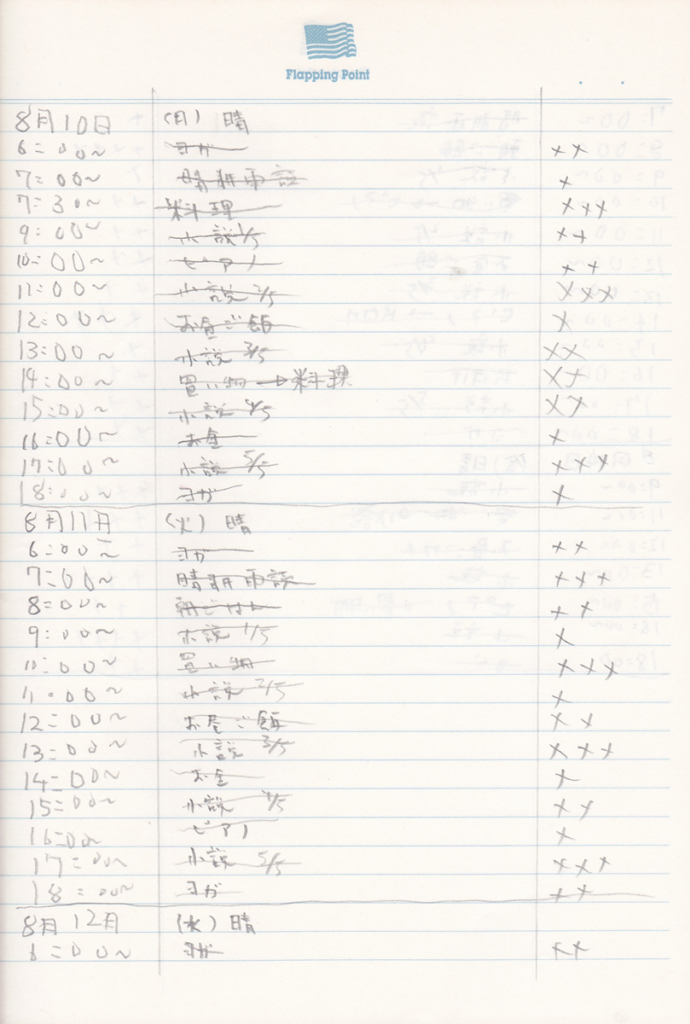 Flapping Point
8月10日 (月) 晴
6:00~ ヨガ ××
7:00~ 晴耕雨読 ×
7:30~ 料理 ×××
9:00~ 小説 1/5 ××
10:00~ ピアノ ××
11:00~ 小説 2/5 ×××
12:00~ お昼ご飯 ×
13:00~ 小説 3/5 ××
14:00~ 買い物→料理 ××
15:00~ 小説 4/5 ××
16:00~ お金 ×
17:00~ 小説 5/5 ×××
18:00~ ヨガ ×
8月11日 (火) 晴
6:00~ ヨガ ××
7:00~ 晴耕雨読 ×××
8:00~ 朝ごはん ××
9:00~ 小説 1/5 ×
10:00~ 買い物 ×××
11:00~ 小説 2/5 ×
12:00~ お昼ご飯 ××
13:00~ 小説 3/5 ×××
14:00~ お金 ×
15:00~ 小説 4/5 ××
16:00~ ピアノ ×
17:00~ 小説 5/5 ×××
18:00~ ヨガ ××
8月12日 (水) 晴
6:00~ ヨガ ××